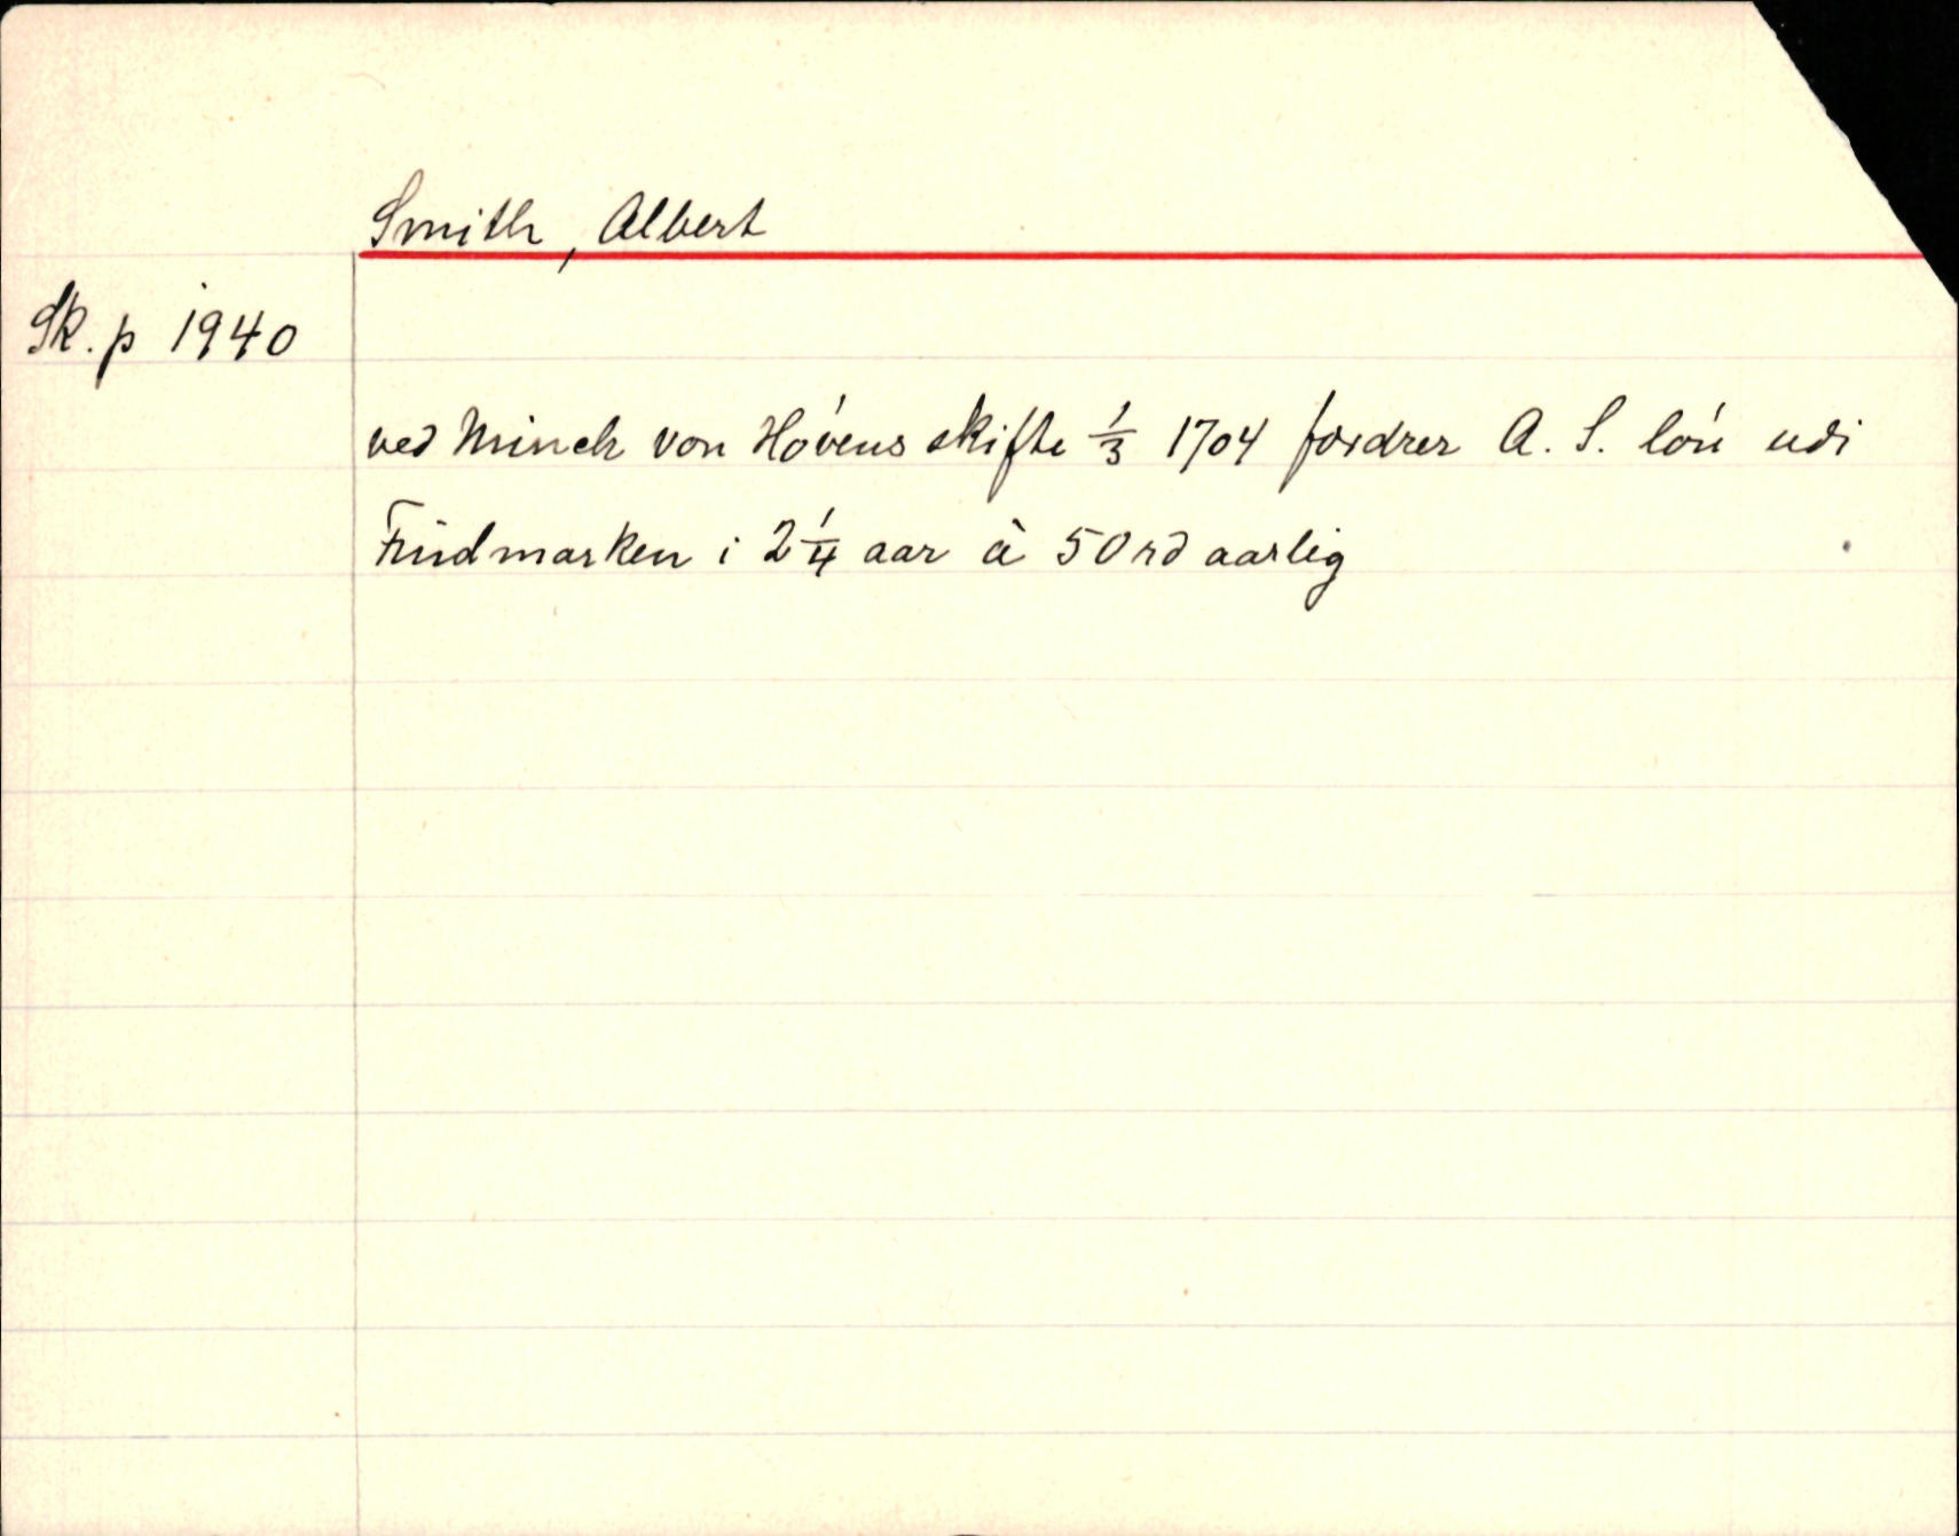 Smith, Albert
Sk. p 1940
ved Minch von Hóvens skifte 1/3 1704 fordrer A. S. lón udi
Findmarken i 2 1/4 aar à 50 rd aarlig